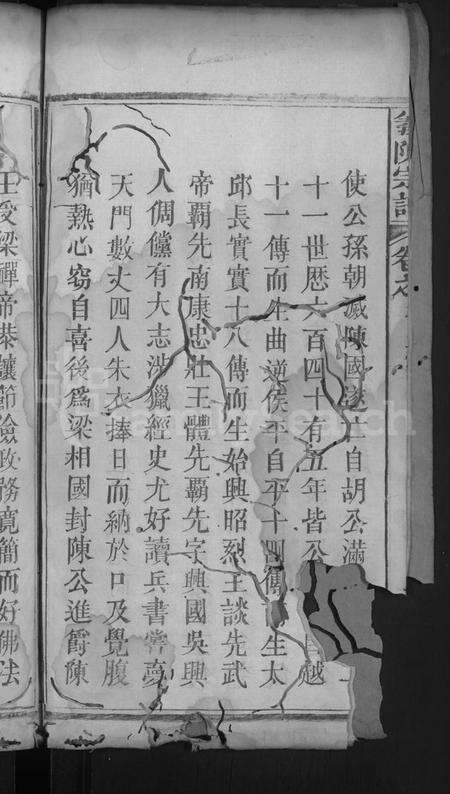 使公孫朝滅陳國遂亡自胡公滿
十一世歷六百四十有五年皆公越
十一傳而生曲逆侯平自平十四傳生太
邱長實實十八傳而生始興昭烈王談先武
帝霸先南康忠壯王體先霸先字興國吳興
人倜儻有大志涉獵經史尤好讀兵書嘗夢
天門數丈四人朱衣捧日而納於口及覺腹
猶熱心窃自喜後為梁相國封陳公進爵陳
王受梁禪帝恭儉政務寬簡而好佛法
陳宗譜 卷之
familysearch